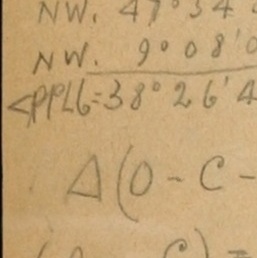 NW. 47°34
NW. 9°08'0
<PPL6=38°26'4
Δ(0-C-
C)=